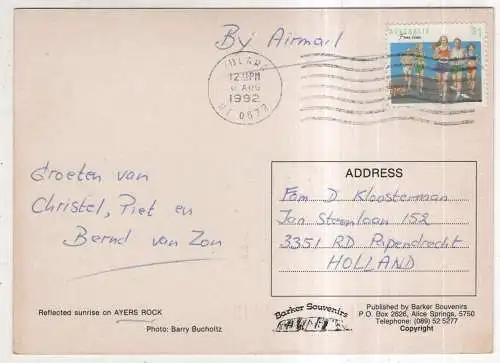 By Airmail
AUSTRALIA
$1
Fun run
YULARA
12 PM
AUG
1992
NT 0872
Groeten van
Christel, Piet en
Bernd van Zon
Reflected sunrise on AYERS ROCK
Photo: Barry Bucholtz
ADDRESS
Fam D Kloosterman
Jan Steenlaan 152
3351 RD Papendrecht
HOLLAND
Barker Souvenirs
Published by Barker Souvenirs
P.O. Box 2626, Alice Springs, 5750
Telephone: (089) 52 5277
Copyright